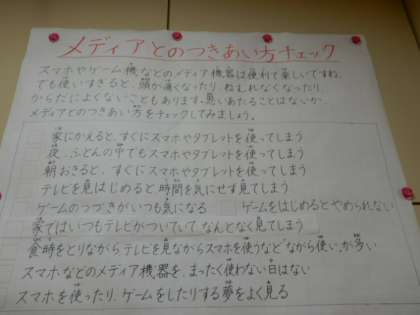 メディアとのつきあい方チェック
スマホやゲーム機などのメディア機器は便利で楽しいですね。
でも使いすぎると、頭が痛くなったり、ねむれなくなったり、
からだによくないこともあります。思いあたることはないか、
メディアとのつきあい方をチェックしてみましょう。
家にかえると、すぐにスマホやタブレットを使ってしまう
夜、ふとんの中でもスマホやタブレットを使ってしまう
朝おきると、すぐにスマホやタブレットを使ってしまう
テレビを見はじめると時間を気にせず見てしまう
ゲームのつづきがいつも気になる ゲームをはじめるとやめられない
家ではいつもテレビがついていて、なんとなく見てしまう
食事をとりながらテレビを見ながらスマホを使うなど“ながら使い”が多い
スマホなどのメディア機器を、まったく使わない日はない
スマホを使ったり、ゲームをしたりする夢をよく見る